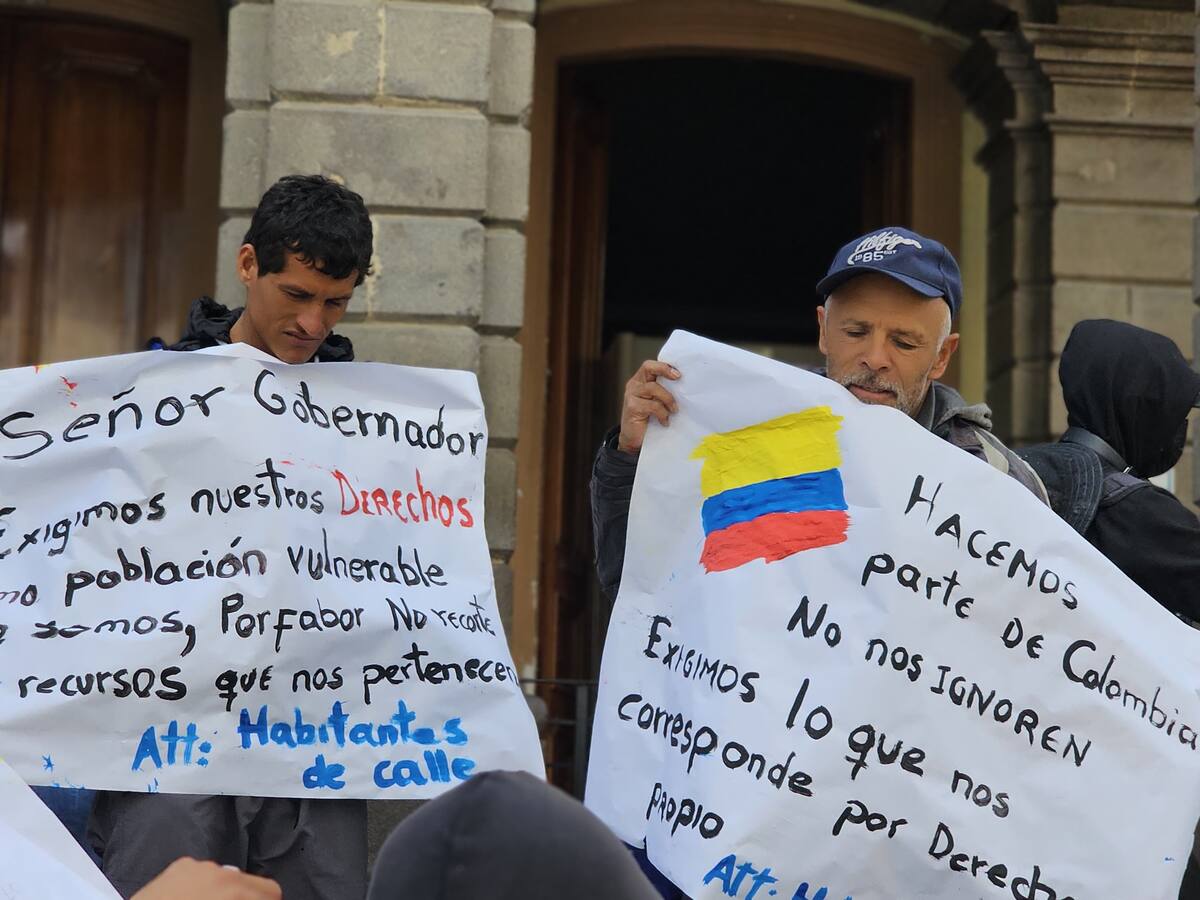 Señor Gobernador
Exigimos nuestros Derechos
mo población vulnerable
somos, Porfabor No recorte
recursos que nos pertenecen
Att: Habitantes
de calle
Hilfiger
1985
Hacemos
parte de Colombia
No nos ignoren
Exigimos lo que nos
corresponde por Derecho
propio
Att: H